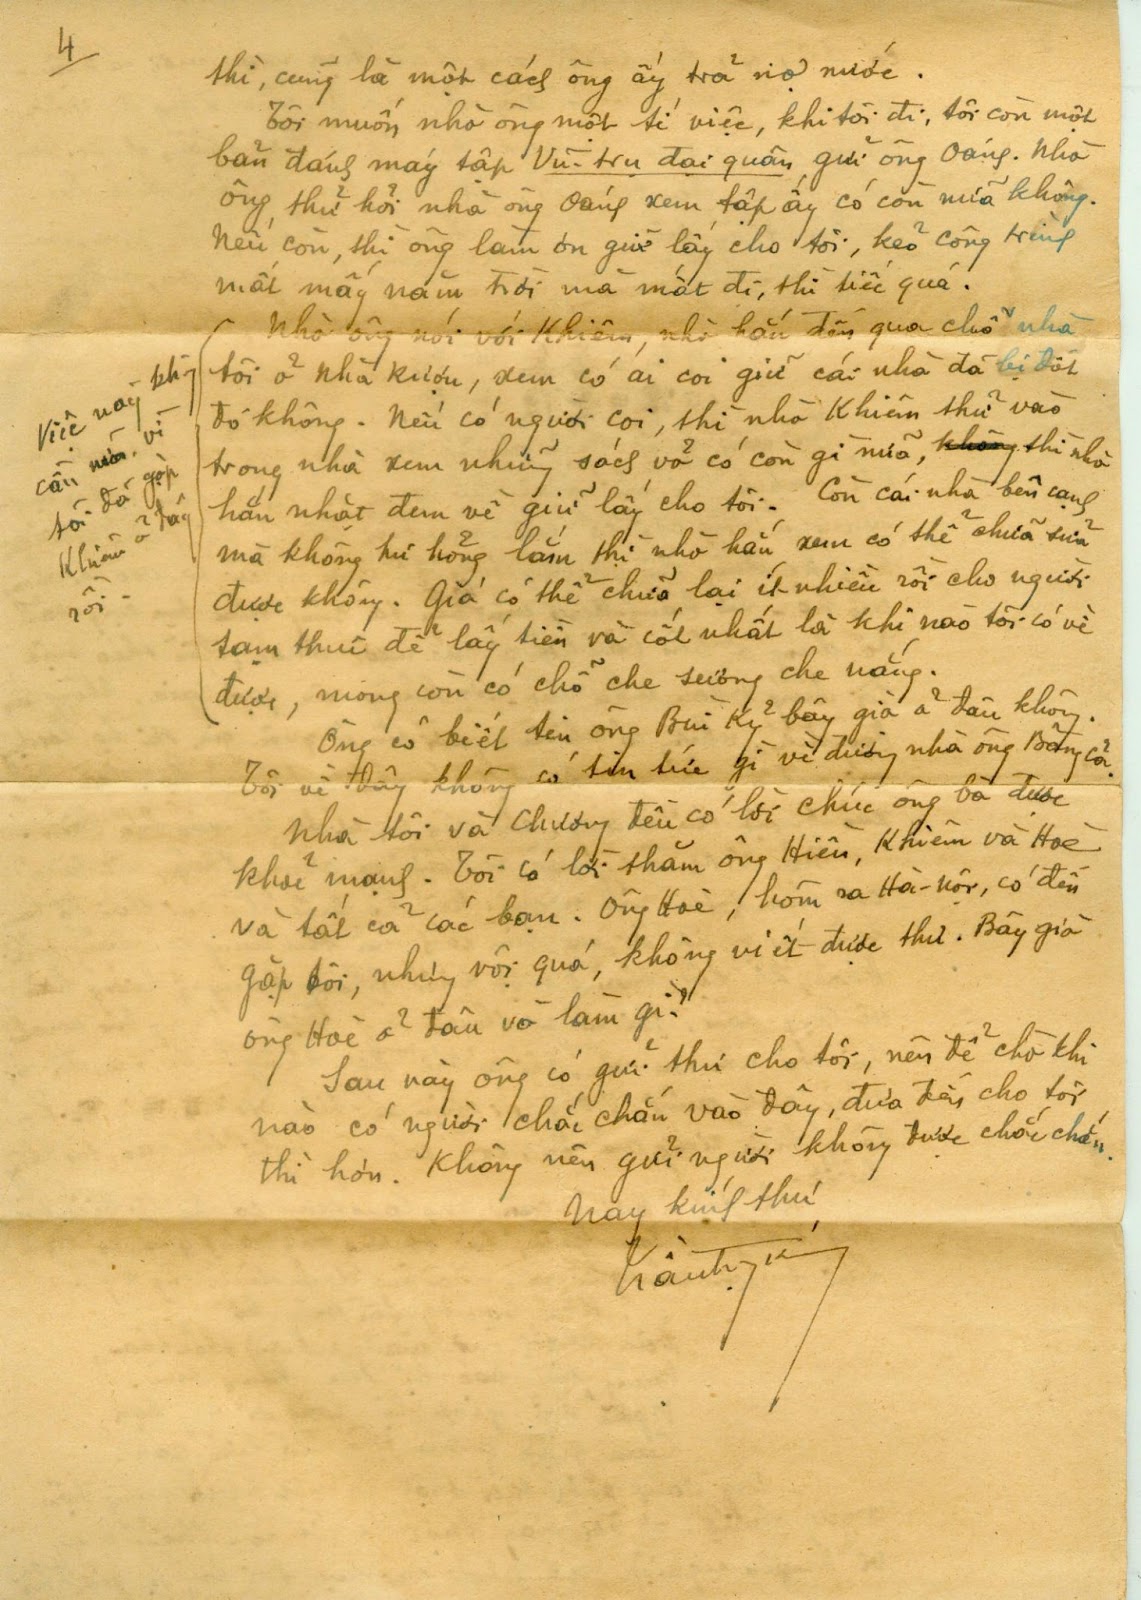 4
thì, cũng là một cách ông ấy trả nợ nước.
Tôi muốn nhờ ông một tí việc, khi tôi đi, tôi còn một
bản đánh máy tập Vũ-trụ đại quan gửi ông Oánh. Nhờ
ông, thử hỏi nhà ông Oánh xem tập ấy có còn nữa không.
Nếu còn, thì ông làm ơn giữ lấy cho tôi, kẻo công trình
mất mấy năm trời mà mất đi, thì tiếc quá.
Nhờ ông nói với Khiêm, nhờ hắn đến qua chỗ nhà
tôi ở Nhà Rượu, xem có ai coi giữ cái nhà đã bị đốt
đó không. Nếu có người coi, thì nhờ Khiêm thử vào
trong nhà xem những sách vở có còn gì nữa, không thì nhờ
hắn nhặt đem về giữ lấy cho tôi. Còn cái nhà bên cạnh
mà không hư hỏng lắm thì nhờ hắn xem có thể chữa sửa
được không. Giá có thể chữa lại ít nhiều rồi cho người
tạm thuê để lấy tiền và cốt nhất là khi nào tôi có về
được, mong còn có chỗ che sương che nắng.
Việc này không
cần nữa, vì
tôi đã gặp
Khiêm ở đây
rồi.
Ông có biết tin ông Bùi Kỷ bây giờ ở đâu không.
Tôi về đây không có tin tức gì về đường nhà ông Bằng cả.
Nhà tôi và Chương đều có lời chúc ông bà được
khoẻ mạnh. Tôi có lời thăm ông Hiền, Khiêm và Hoè
và tất cả các bạn. Ông Hoè, hôm ra Hà-nội, có đến
gặp tôi, nhưng vội quá, không viết được thư. Bây giờ
ông Hoè ở đâu và làm gì?
Sau này ông có gửi thư cho tôi, nên để chờ khi
nào có người chắc chắn vào đây, đưa đến cho tôi
thì hơn. Không nên gửi người không được chắc chắn.
Nay kính thư